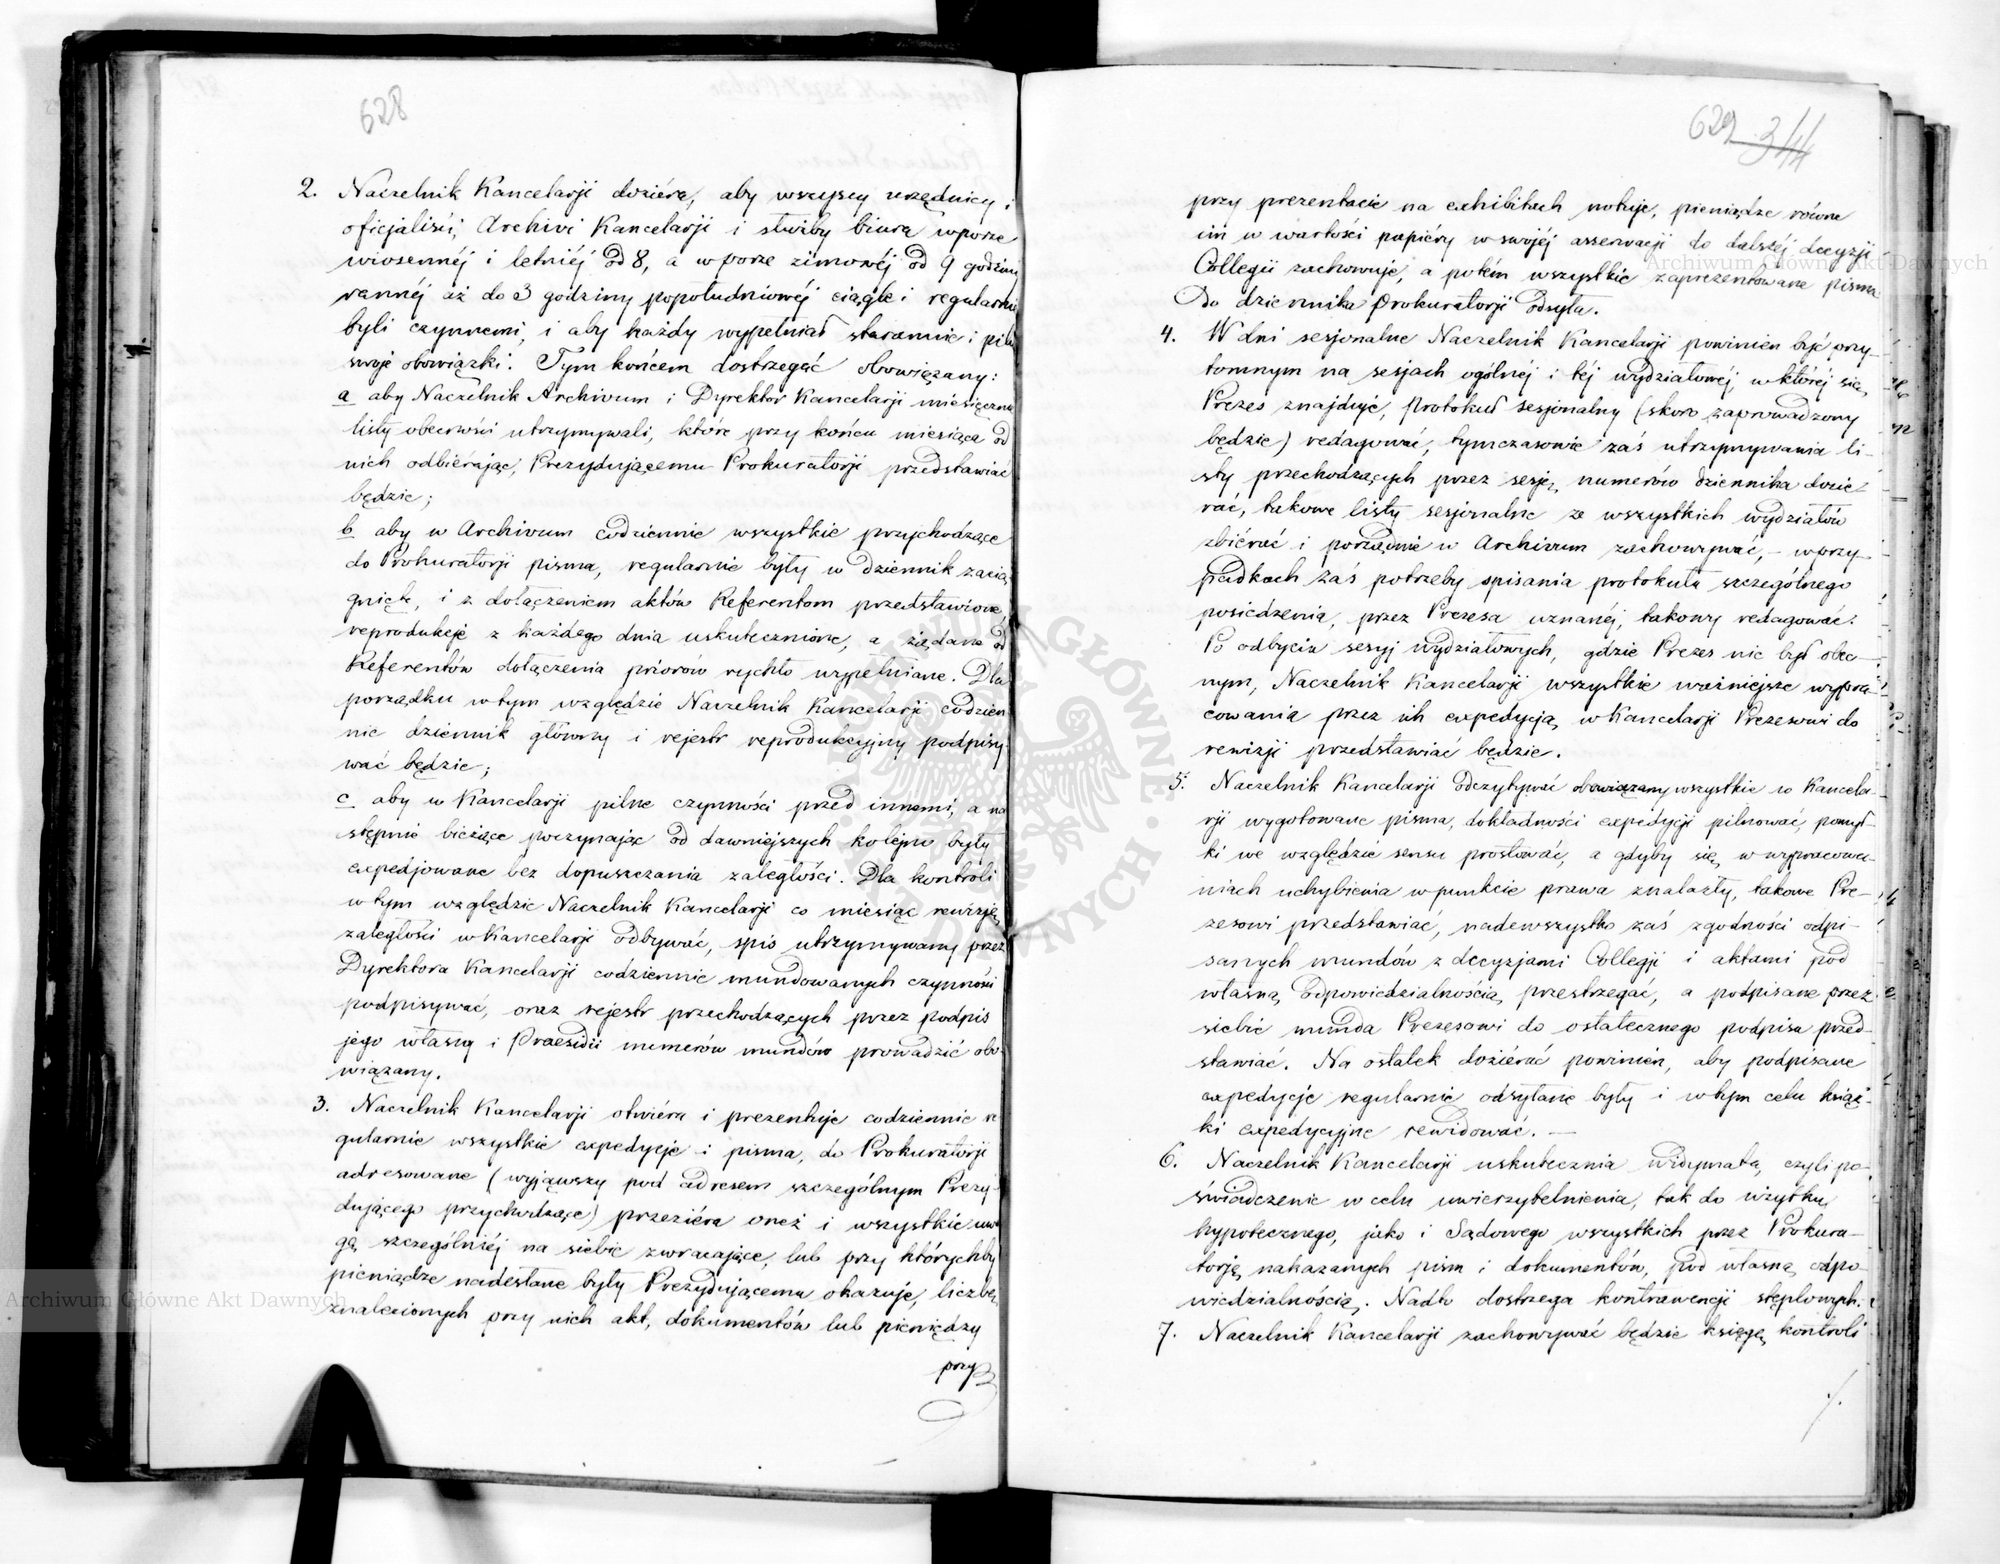 628
2. Naczelnik Kancelarji doziéra, aby wszyscy urzędnicy i
oficjaliści, Archivi Kancelarji i służby biura w porze
wiosennéj i letniéj od 8, a w porze zimowéj od 9 godziny
rannéj aż do 3 godziny popołudniowéj ciągle i regularnie
byli czynnemi, i aby każdy wypełniał starannie i piln
swoje obowiązki. Tym końcem dostrzegać obowiązany:
a aby Naczelnik Archivum i Dyrektor Kancelarji miesięczne
listy obecności utrzymywali, które przy końcu miesiąca od
nich odbiérając, Prezydującemu Prokuratorji przedstawiać
będzie;
b aby w Archivum codziennie wszystkie przychodzące
do Prokuratorji pisma, regularnie były w dziennik zacią
gnięte, i z dołączeniem aktów Referentom przedstawione,
reprodukcje z każdego dnia uskutecznione, a żądane od
Referentów dołączenia priorów rychło uzupełniane. Dla
porządku w tym względzie Naczelnik Kancelarji codzien
nie dziennik główny i rejestr reprodukcyjny podpisy-
wać będzie;
c aby w Kancelarji pilne czynności przed innemi, a na
stępnie bieżące poczynając od dawniejszych kolejno były
expedjowane bez dopuszczania zaległości. Dla kontroli
w tym względzie Naczelnik Kancelarji co miesiąc rewizję
zaległości w Kancelarji odbywać, spis utrzymywany przez
Dyrektora Kancelarji codziennie mundowanych czynności
podpisywać, oraz rejestr przechodzących przez podpis
jego własny i Praesidii numerów mundów prowadzić obo-
wiązany.
3. Naczelnik Kancelarji otwiéra i prezentuje codziennie re
gularnie wszystkie expedycje i pisma, do Prokuratorji
adresowane (wyjąwszy pod adresem szczególnym Prezy-
dującego przychodzące) przeziéra oneż i wszystkie uwa
gę szczególniéj na siebie zwracające, lub przy którychby
pieniądze nadesłane były Prezydującemu okazuje, liczbę
znalezionych przy nich akt, dokumentów lub pieniędzy
przy
629 344
przy prezentacie na exhibitach notuje, pieniądze równe
im w wartości papiéry w swojéj asserwacji do dalszéj decyzji
Collegii zachowuje, a potém wszystkie zaprezentowane pisma
do dziennika Prokuratorji odsyła.
4. W dni sesjonalne Naczelnik Kancelarji powinien być przy-
tomnym na sesjach ogólnéj i téj wydziałowéj, w któréj się
Prezes znajduje, protokuł sesjonalny (skoro zaprowadzony
będzie) redagować, tymczasowie zaś utrzymywania li-
sty przechodzących przez sesję numerów dziennika dozié-
rać, takowe listy sesjonalne ze wszystkich wydziałów
zbiérać i porządnie w Archivum zachowywać, – w przy-
padkach zaś potrzeby spisania protokułu szczególnego
posiedzenia, przez Prezesa uznanéj, takowy redagować.
Po odbyciu sesyj wydziałowych, gdzie Prezes nie był obec-
nym, Naczelnik Kancelarji wszystkie ważniejsze wypra-
cowania przez ich expedycją w Kancelarji Prezesowi do
rewizji przedstawiać będzie.
5. Naczelnik Kancelarji odczytywać obowiązany wszystkie w Kancela-
rji wygotowane pisma, dokładności expedycji pilnować, pomył-
ki we względzie sensu prostować, a gdyby się w wypracowa-
niach uchybienia w punkcie prawa znalazły, takowe Pre-
zesowi przedstawiać, nadewszystko zaś zgodności odpi-
sanych mundów z decyzjami Collegji i aktami pod
własną odpowiedzialnością przestrzegać, a podpisane przez
siebie munda Prezesowi do ostatecznego podpisu przed-
stawiać. Na ostatek doziérać powinien, aby podpisane
expedycje regularnie odsyłane były i w tym celu książ-
ki expedycyjne rewidować. —
6. Naczelnik Kancelarji uskutecznia widymata, czyli po-
świadczenie w celu uwierzytelnienia, tak do użytku
hypotecznego, jako i Sądowego wszystkich przez Prokura-
torję nakazanych pism i dokumentów, pod własną odpo-
wiedzialnością. Nadto dostrzega kontrawencji stęplowych.
7. Naczelnik Kancelarji zachowywać będzie księgę kontroli
Archiwum Główne Akt Dawnych
Archiwum Główne Akt Dawnych